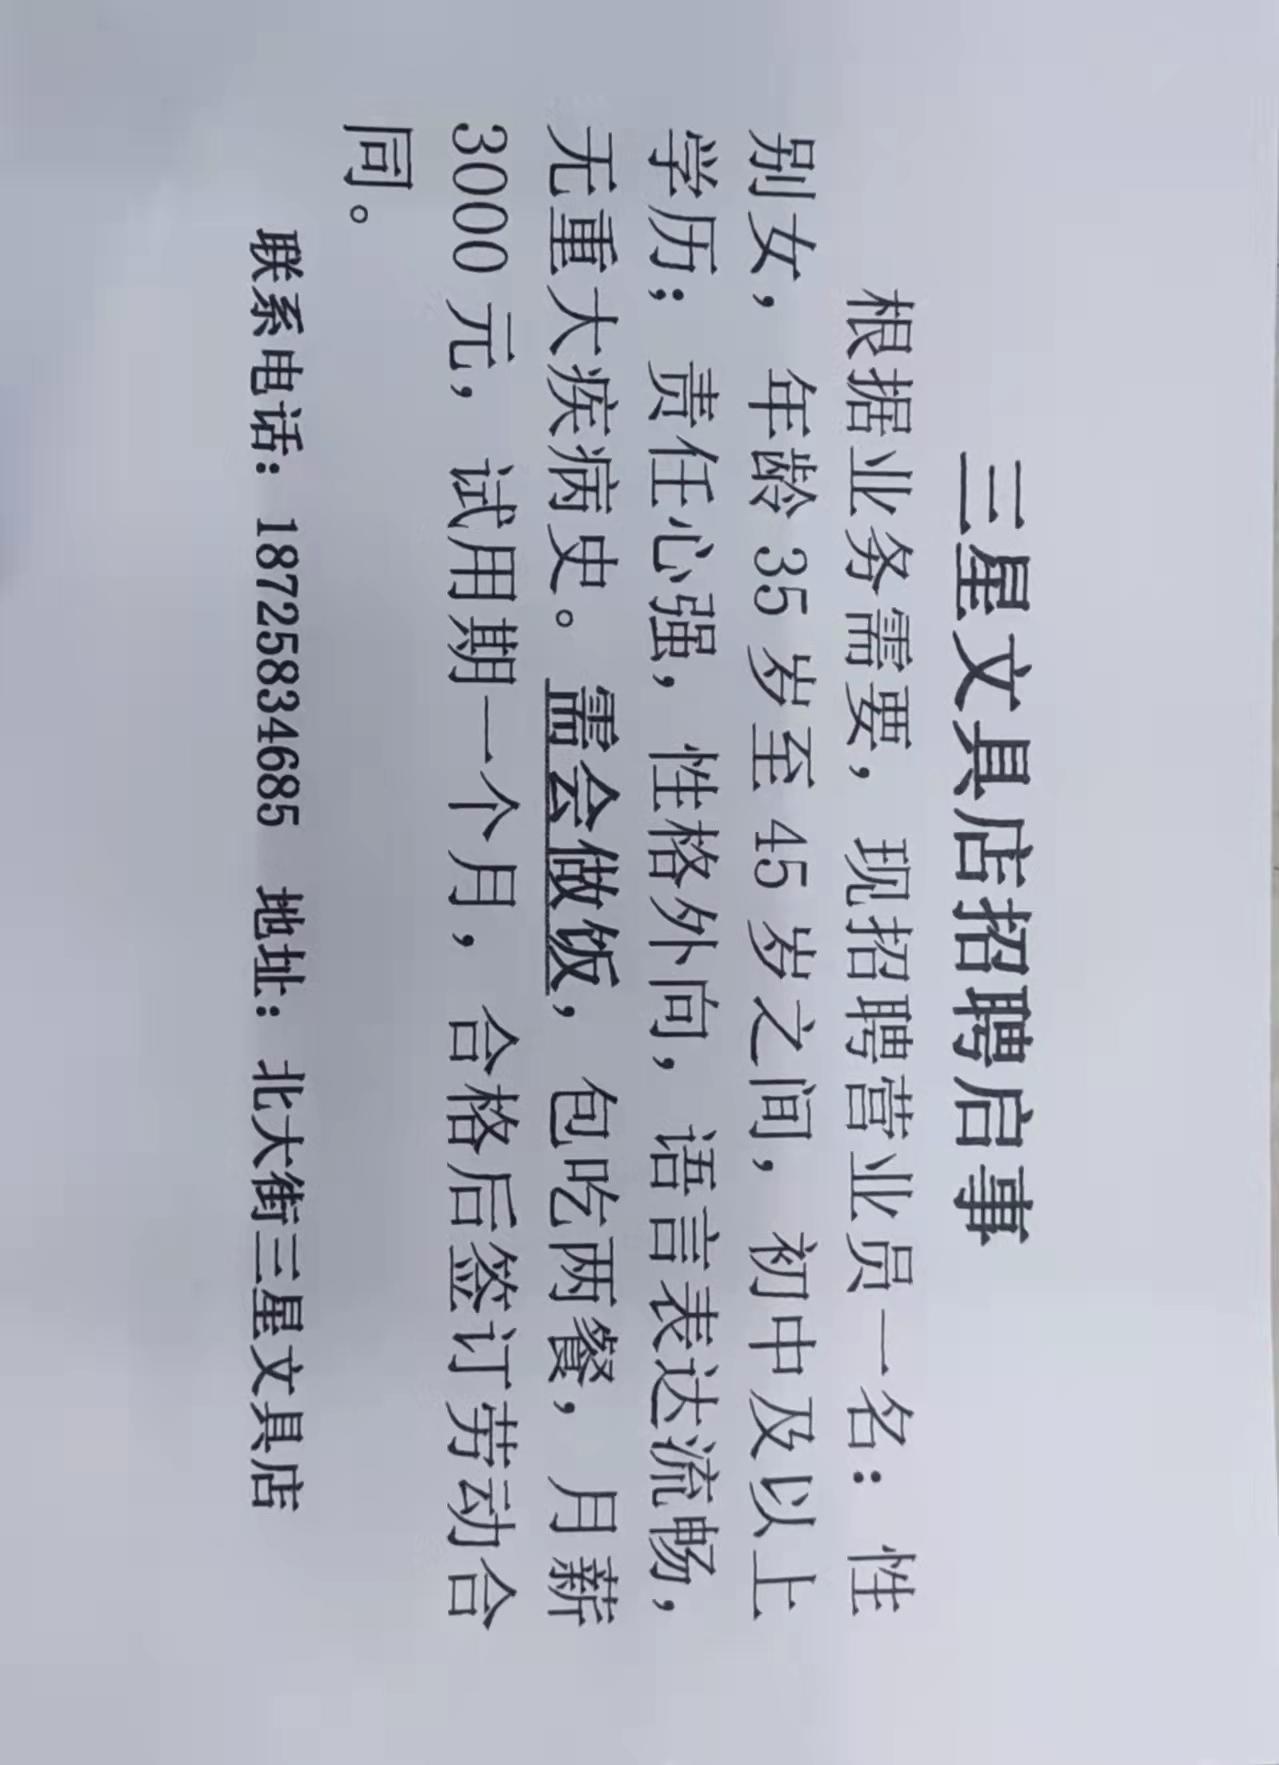 三星文具店招聘启事
根据业务需要，现招聘营业员一名：性
别女，年龄 35 岁至 45 岁之间，初中及以上
学历；责任心强，性格外向，语言表达流畅，
无重大疾病史。需会做饭，包吃两餐，月薪
3000 元，试用期一个月，合格后签订劳动合
同。
联系电话：18725834685 地址：北大街三星文具店